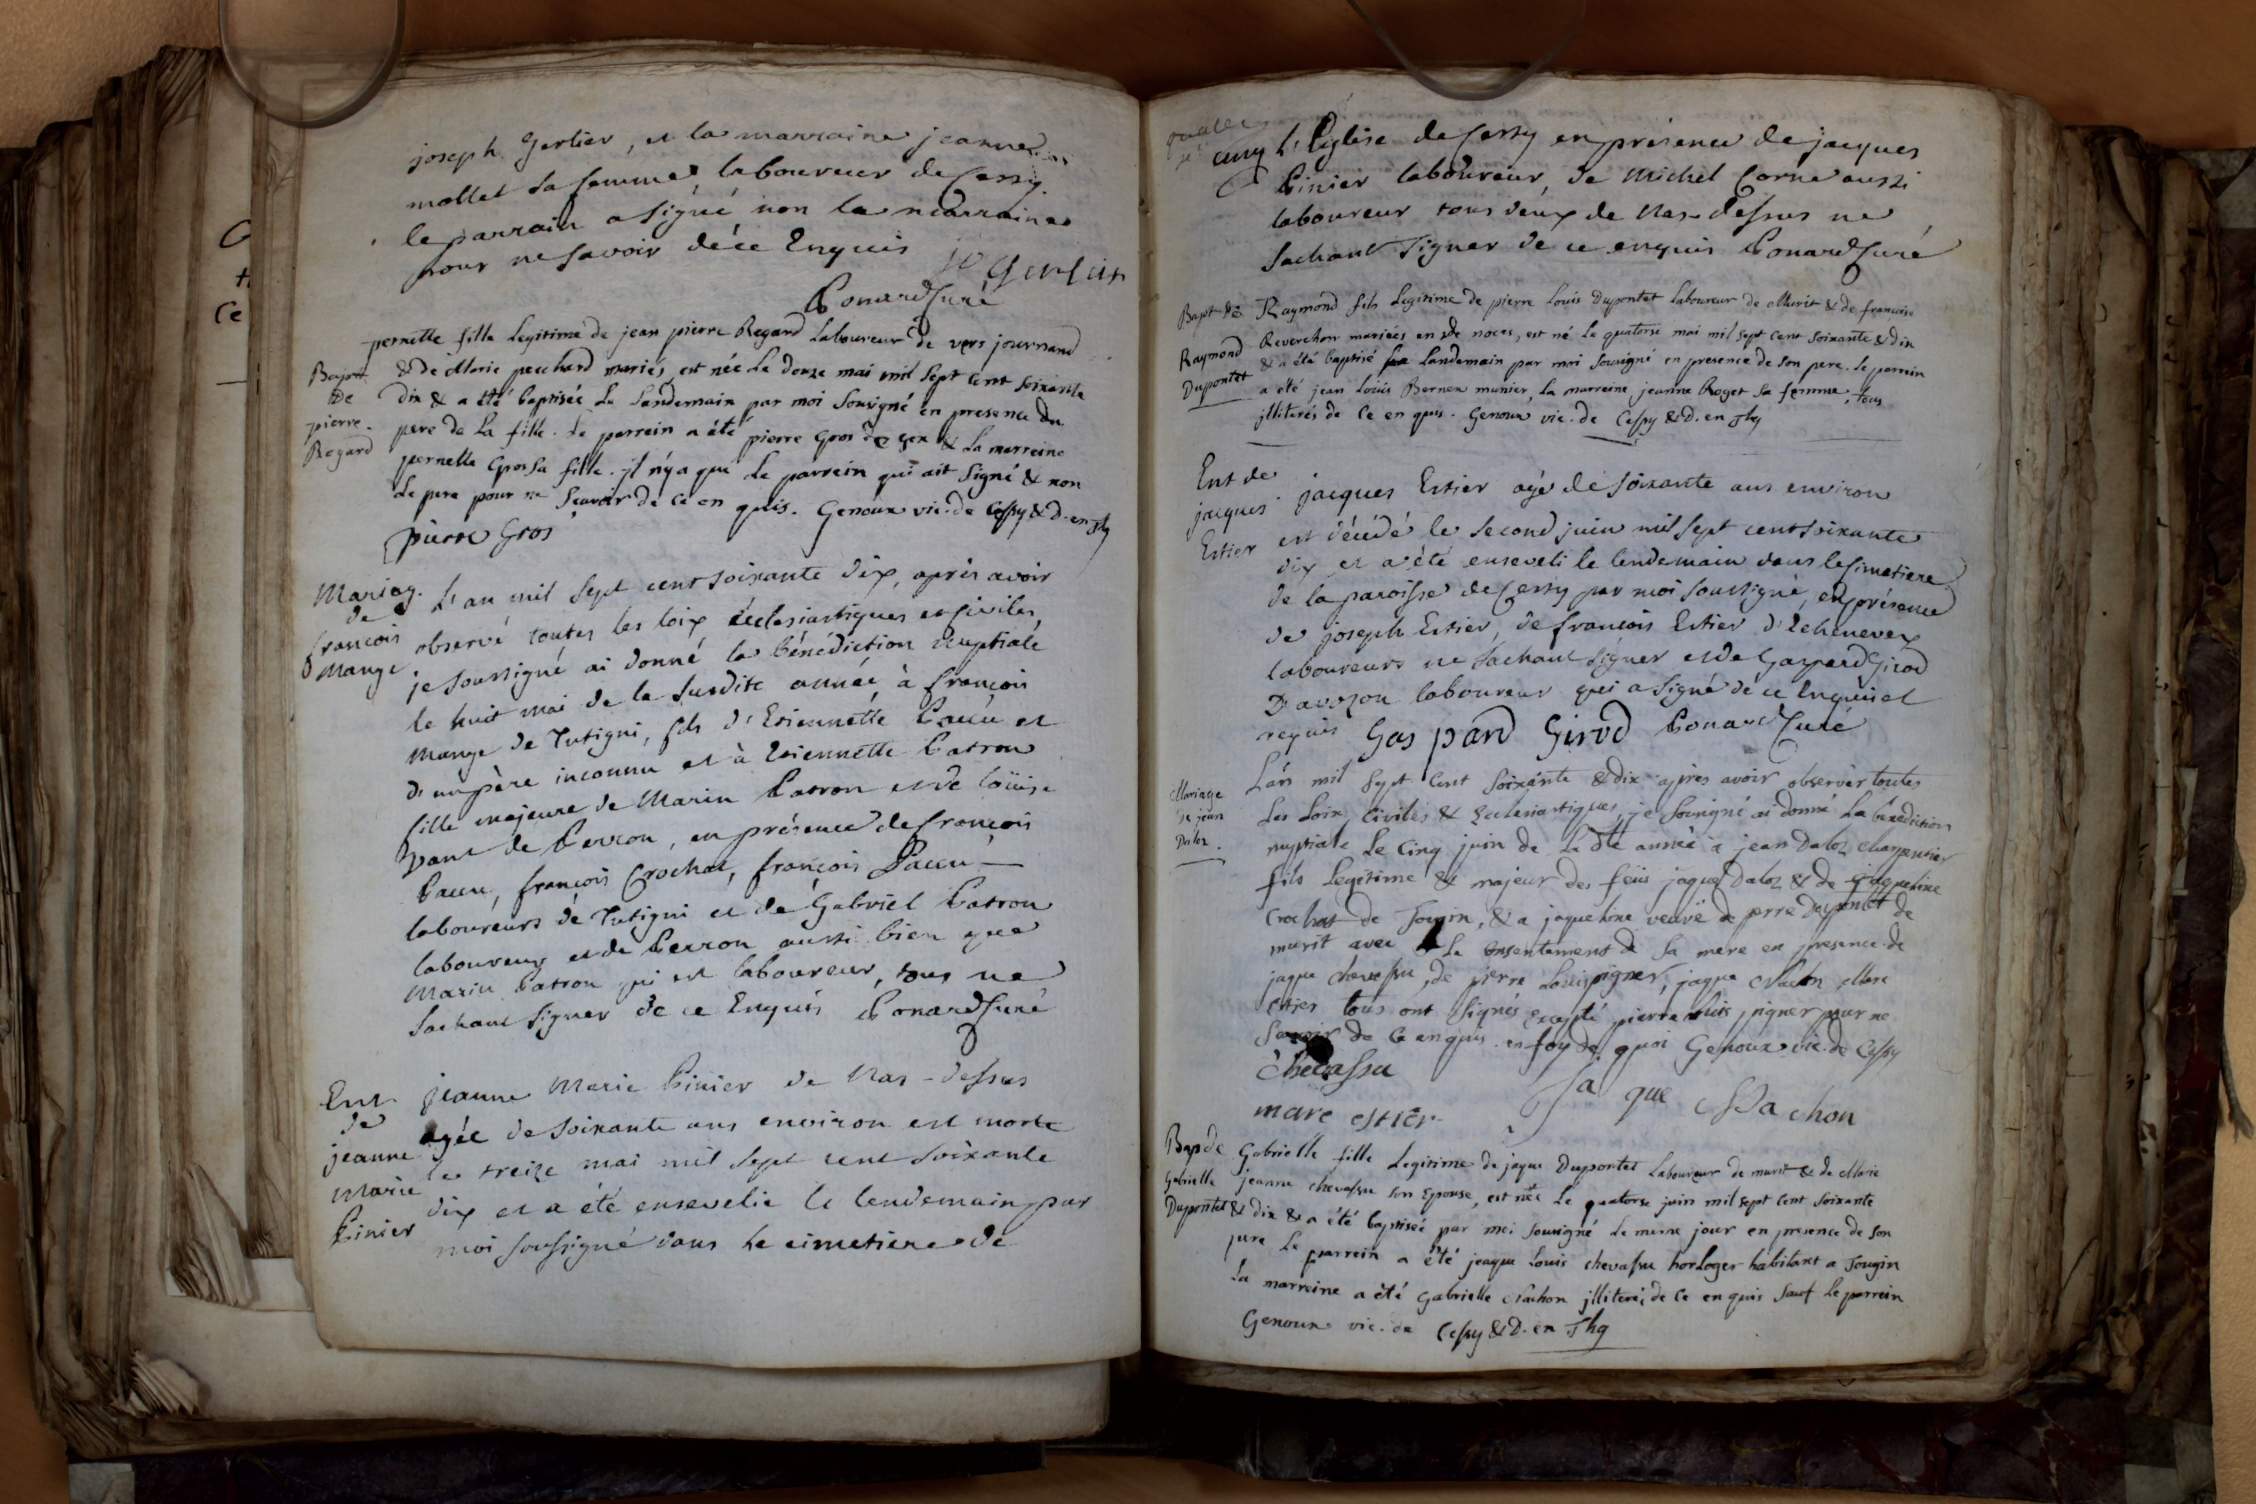 joseph Gerlier, et la marraine jeanne
mollet sa femme laboureur de Cessy.
le parrain a signé non la marraine
pour ne savoir de ce Enquis
Ponard Curé
Bapt. de pierre. Regard
pernette fille Legitime de jean pierre Regard Laboureur de vers journand
& de Marie pecchard mariés, est née Le douze mai mil sept cent soixante
dix & a été baptisée Le Landemain par moi Sousigné en presence du
pere de La fille. Le parrein a été pierre Gros de gex & La marreine
pernette Gros sa fille. jl n'y a que Le parrein qui ait Signé & non
Le pere pour ne Scavoir de Ce en quis. Genoux vic. de Cessy & D. en Thg
pierre Gros
Mariag. de françois Mange
L'an mil sept cent soixante dix, après avoir
observé toutes les loix écclesiastiques et civiles,
je soussigné ai donné la bénédiction Nuptiale
le huit mai de la susdite année à françois
Mange de Tutigni, fils d'Etiennette Paccu et
d'un père inconnu et à Etiennette Patron
fille majeure de Marin Patron et de loüise
de Perron, en présence de françois
Paccu, françois Crochat, françois Paccu
laboureurs de Tutigni et de Gabriel Patron
laboureur et de Perron aussi bien que
Marin Patron qui est laboureur, tous ne
Sachant signer de ce Enquis Ponard Curé
Ent. de jeanne Marie Pinier
jeanne Marie Pinier de Nas-dessus
agée de soixante ans environ est morte
le treize mai mil sept cent soixante
dix et a été ensevelie le lendemain par
moi soussigné dans le cimetiere de
L'Eglise de Cessy en présence de jacques
Pinier laboureur, de Michel Corne aussi
laboureur tous deux de Nas-dessus ne
Sachant signer de ce enquis Ponard Curé
Bapt. de Raymond Dupontet
Raymond fils Legitime de pierre Louis Dupontet Laboureur de Murit & de francoise
Reverchon mariées en 2de noces, est né Le quatorse mai mil sept cent soixante & dix
& a été baptisé Landemain par moi Sousigné en presence de Son pere. Le parrein
a été jean Loüis Bernex munier, La marreine jeanne Roget Sa femme, tous
jlliterés de Ce en quis. Genoux vic. de Cessy & D. en Thg
Ent de jacques Estier
jacques Estier agé de soixante ans environ
est décédé le second juin mil sept cent soixante
dix et a été enseveli le lendemain dans le Cimetiere
de la paroisse de Cessy par moi soussigné, en présence
de joseph Estier, de françois Estier d'Echenevex
laboureurs ne sachant signer et de Gaspard Girod
D'avozon laboureur qui a signé de ce Enquis et
requis Gaspard Girod Ponard Curé
Mariage de jean Daloz.
L'an mil Sept Cent Soixante & dix apres avoir observer toutes
Les Loix Civiles & Ecclesiastiques, je Sousigné ai donné La bénediction
nuptiale Le Cinq juin de La dte année a jean Daloz Charpentier
fils Legitime & majeur des feüs jaque Daloz & de jaqueline
Crochat de Tougin, & a jaqueline veuve de pierre Dupontet de
murit avec Le Consentement de Sa mere en presence de
jaque chevassu, de pierre Louis pigner, jaque Vachon Marc
estier tous ont Signés excepté pierre Louis pigner pour ne
Scavoir de Ce enquis. en foy de quoi Genoux vic. de Cessy
Chevassu
Jaque Vachon
marc estier
Bap de Gabrielle Dupontet
Gabrielle fille Legitime de jaque Dupontet Laboureur de murit & de Marie
jeanne chevassu son Epouse, est née Le quatorse juin mil sept Cent Soixante
& dix & a été baptisée par moi Sousigné Le meme jour en presence de Son
pere Le parrein a été jaque Louis chevassu horloger habitant a Tougin
La marreine a été Gabrielle Vachon jlliteré; de Ce en quis Sauf Le parrein
Genoux vic. de Cessy & D. en Thg